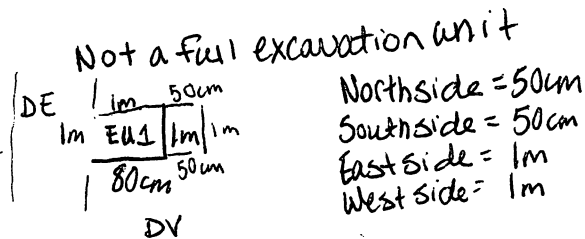 Not a full excavation unit
DE 1m 50cm
1m EU1 1m 1m
80cm 50cm
DV
Northside = 50cm
Southside = 50cm
East side = 1m
West side = 1m